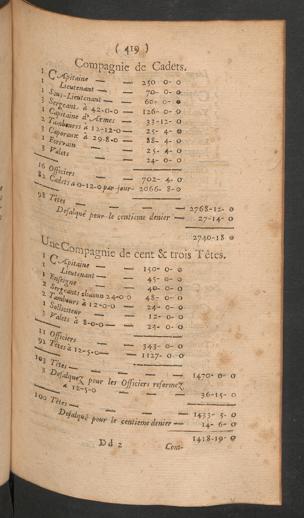 ( 419 )
Compagnie de Cadets.
1 CApitaine — — 250-0-0
1 Lieutenant — — 70-0-0
1 Sous-Lieutenant — — 60-0-0
3 Sergeant. à 42-0-0 — 126-0-0
1 Capitaine d'Armes — 33-12-0
2 Tambours à 12-12-0 — 25-4-0
3 Caporaux à 29-8-0 — 88-4-0
1 Ecrivain — — 25-4-0
3 Valets — — 24-0-0
16 Officiers — — 702-4-0
82 Cadets à 0-12-0 par jour- 2066-8-0
98 Têtes — — — — 2768-12-0
Defalqué pour le centieme denier — 27-14-0
2740-18-0
Une Compagnie de cent & trois Têtes.
1 CApitaine — — 150-0-0
1 Lieutenant — — 45-0-0
1 Enseigne — — 40-0-0
2 Sergeants chacun 24-0-0 48-0-0
2 Tambours à 12-0-0 — 24-0-0
1 Solliciteur — — 12-0-0
3 Valets à 8-0-0 — — 24-0-0
11 Officiers — — 343-0-0
92 Têtes à 12-5-0 — — 1127-0-0
103 Têtes — — — — 1470-0-0
3 Defalquez pour les Officiers reformez
à 12-5-0 — — — 36-15-0
100 Têtes — — — — 1433-5-0
Defalqué pour le centieme denier — 14-6-0
1418-19-0
Dd 2 Cent-